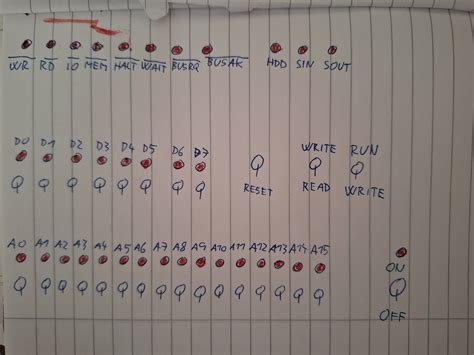 WR RD IO MEM HALT WAIT BUSRQ BUSAK HDD SIN SOUT
D0 D1 D2 D3 D4 D5 D6 D7 WRITE RUN
RESET READ WRITE
A0 A1 A2 A3 A4 A5 A6 A7 A8 A9 A10 A11 A12 A13 A14 A15
ON
OFF